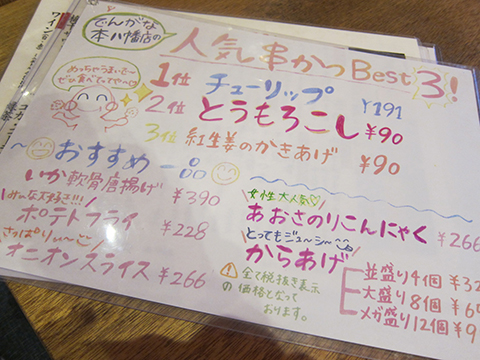 でんがな
本八幡店の
人気串かつBest3!
めっちゃうまいでー
ぜひ食べてってやー
1位 チューリップ ¥191
2位 とうもろこし ¥90
3位 紅生姜のかきあげ ¥90
おすすめ一品
いか軟骨唐揚げ ¥390
みんな大好き!!!
ポテトフライ ¥228
さっぱりぃ〜
オニオンスライス ¥266
女性大人気♡
あおさのりこんにゃく ¥266
とってもジューシ〜
からあげ
並盛り4個 ¥32
大盛り8個 ¥6
メガ盛り12個 ¥9
! 全て税抜き表示
の価格となって
おります。